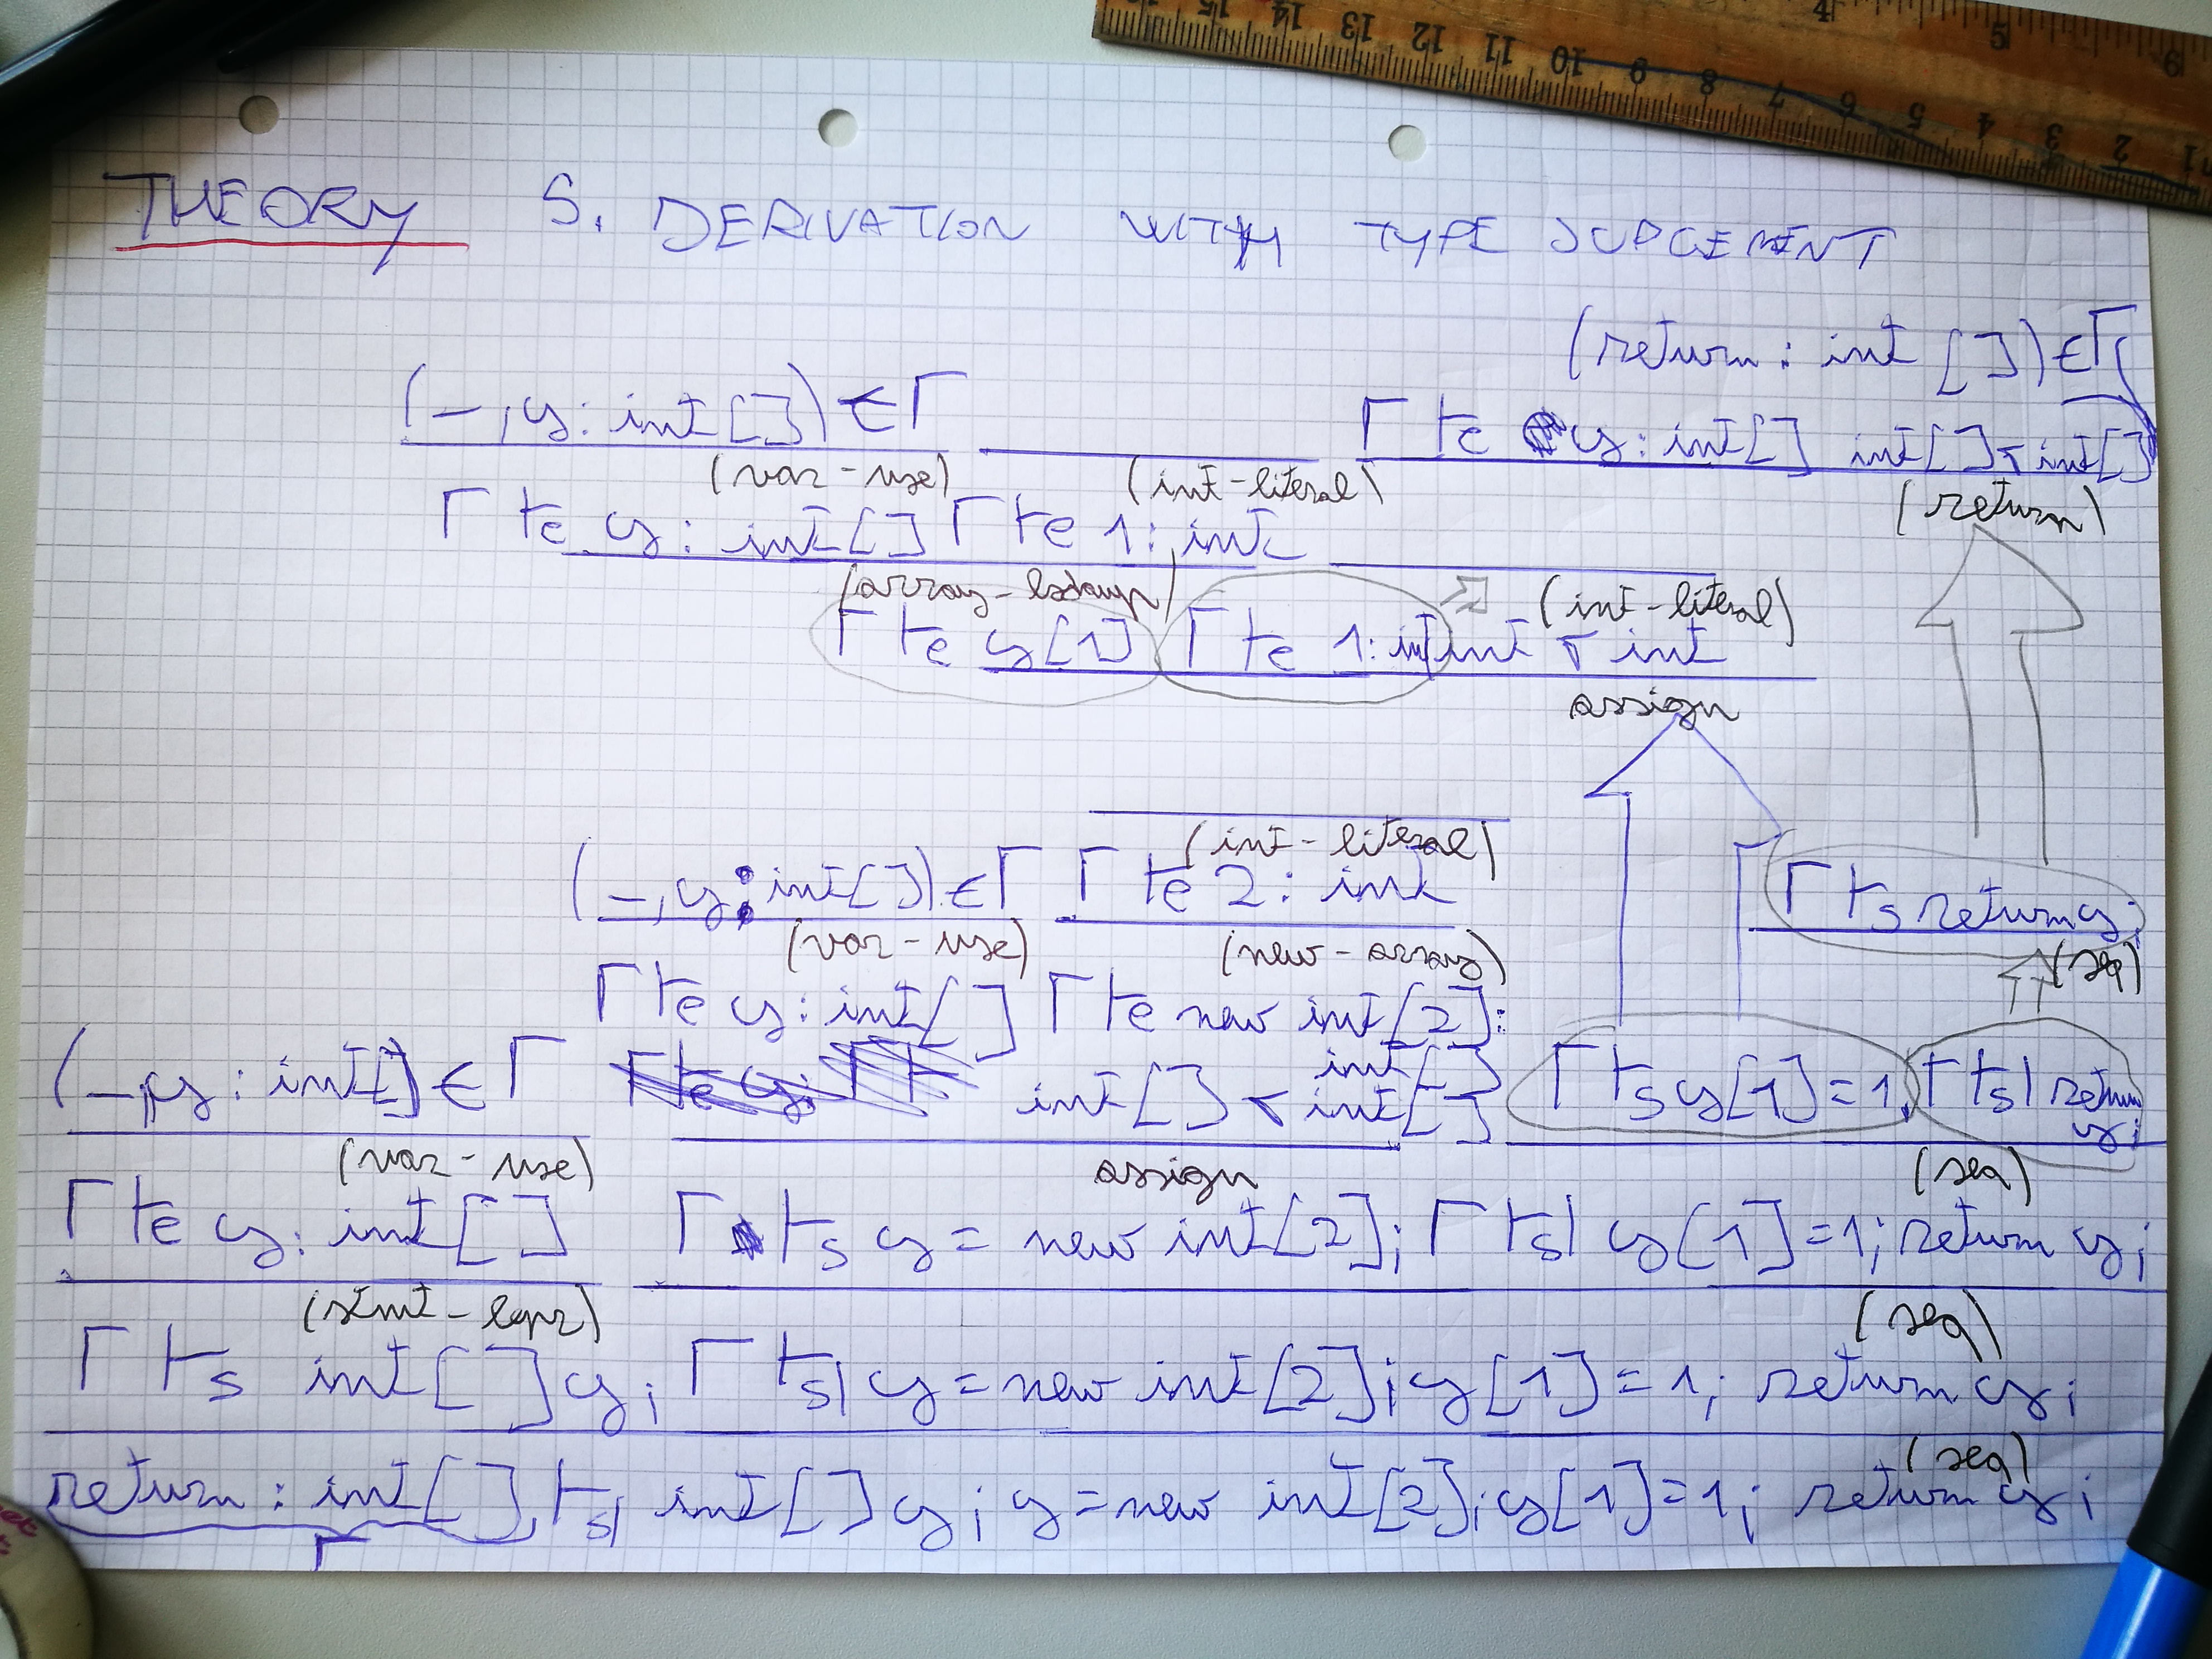 THEORY 5. DERIVATION WITH TYPE JUDGEMENT
(return : int []) ∈ Γ
(–, y : int []) ∈ Γ
Γ ⊢e y : int[] int[] ⊽ int[]
(var-use) (int-literal) (return)
Γ ⊢e y : int[] Γ ⊢e 1 : int
(array-lookup) (int-literal)
Γ ⊢e y[1] Γ ⊢e 1: int int ⊽ int
assign
(int-literal)
(–, y : int[]) ∈ Γ Γ ⊢e 2 : int Γ ⊢s return y;
(var-use) (new-array) (seq)
Γ ⊢e y : int[] Γ ⊢e new int[2]:
int[]
(–, y : int[]) ∈ Γ int[] ⊽ int[] Γ ⊢s y[1]=1, Γ ⊢sl return
y;
(var-use) assign (seq)
Γ ⊢e y : int[] Γ ⊢s y = new int[2]; Γ ⊢sl y[1]=1; return y;
(stmt-expr) (seq)
Γ ⊢s int[] y; Γ ⊢sl y = new int[2]; y[1]=1; return y;
(seq)
return : int[], ⊢sl int[] y; y = new int[2]; y[1]=1; return y;
Γ
15 14 13 12 11 10 9 8 7 6 5 4 3 2 1
4 5 6